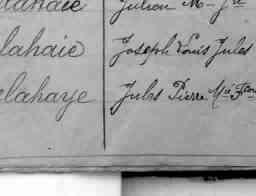 lahaie Julien M
lahaie Joseph Louis Jules
elahaye Jules Pierre Mie